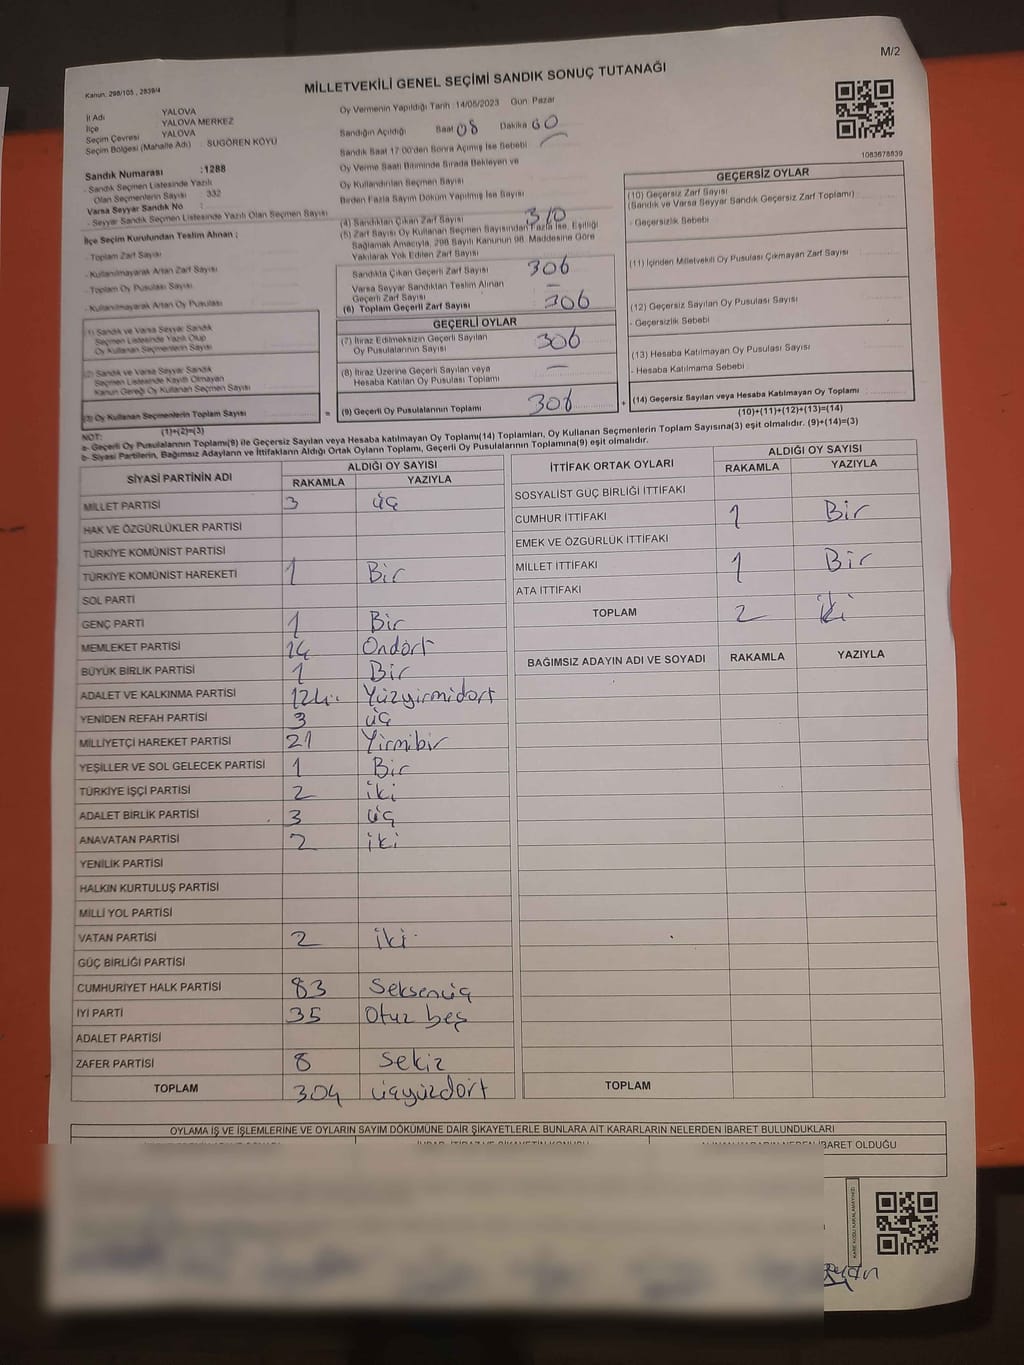 M/2
Kanun: 298/105 , 2839/4
MİLLETVEKİLİ GENEL SEÇİMİ SANDIK SONUÇ TUTANAĞI
İl Adı YALOVA
İlçe YALOVA MERKEZ
Seçim Çevresi YALOVA
Seçim Bölgesi (Mahalle Adı) : SUGÖREN KÖYÜ
Sandık Numarası :1288
- Sandık Seçmen Listesinde Yazılı
Olan Seçmenlerin Sayısı : 332
Varsa Seyyar Sandık No :
- Seyyar Sandık Seçmen Listesinde Yazılı Olan Seçmen Sayısı
İlçe Seçim Kurulundan Teslim Alınan ;
- Toplam Zarf Sayısı
- Kullanılmayarak Artan Zarf Sayısı
- Toplam Oy Pusulası Sayısı
- Kullanılmayarak Artan Oy Pusulası
(1) Sandık ve Varsa Seyyar Sandık
Seçmen Listesinde Yazılı Olup
Oy Kullanan Seçmenlerin Sayısı
(2) Sandık ve Varsa Seyyar Sandık
Seçmen Listesinde Kayıtlı Olmayan
Kanun Gereği Oy Kullanan Seçmen Sayısı
(3) Oy Kullanan Seçmenlerin Toplam Sayısı
(1)+(2)=(3)
Oy Vermenin Yapıldığı Tarih :14/05/2023 Gün: Pazar
Sandığın Açıldığı Saat 08 Dakika 60
Sandık Saat 17:00'den Sonra Açılmış İse Sebebi
Oy Verme Saati Bitiminde Sırada Bekleyen ve
Oy Kullandırılan Seçmen Sayısı
Birden Fazla Sayım Döküm Yapılmış İse Sayısı
(4) Sandıktan Çıkan Zarf Sayısı 310
(5) Zarf Sayısı Oy Kullanan Seçmen Sayısından Fazla İse, Eşitliği
Sağlamak Amacıyla, 298 Sayılı Kanunun 98. Maddesine Göre
Yakılarak Yok Edilen Zarf Sayısı
Sandıkta Çıkan Geçerli Zarf Sayısı 306
Varsa Seyyar Sandıktan Teslim Alınan
Geçerli Zarf Sayısı —
(6) Toplam Geçerli Zarf Sayısı 306
GEÇERLİ OYLAR
(7) İtiraz Edilmeksizin Geçerli Sayılan
Oy Pusulalarının Sayısı 306
(8) İtiraz Üzerine Geçerli Sayılan veya
Hesaba Katılan Oy Pusulası Toplamı —
= (9) Geçerli Oy Pusulalarının Toplamı 306 +
1083678839
GEÇERSİZ OYLAR
(10) Geçersiz Zarf Sayısı
(Sandık ve Varsa Seyyar Sandık Geçersiz Zarf Toplamı)
- Geçersizlik Sebebi
(11) İçinden Milletvekili Oy Pusulası Çıkmayan Zarf Sayısı
(12) Geçersiz Sayılan Oy Pusulası Sayısı
- Geçersizlik Sebebi
(13) Hesaba Katılmayan Oy Pusulası Sayısı
- Hesaba Katılmama Sebebi
(14) Geçersiz Sayılan veya Hesaba Katılmayan Oy Toplamı
(10)+(11)+(12)+(13)=(14)
NOT:
a- Geçerli Oy Pusulalarının Toplamı(9) ile Geçersiz Sayılan veya Hesaba katılmayan Oy Toplamı(14) Toplamları, Oy Kullanan Seçmenlerin Toplam Sayısına(3) eşit olmalıdır. (9)+(14)=(3)
b- Siyasi Partilerin, Bağımsız Adayların ve İttifakların Aldığı Ortak Oyların Toplamı, Geçerli Oy Pusulalarının Toplamına(9) eşit olmalıdır.
SİYASİ PARTİNİN ADI ALDIĞI OY SAYISI
RAKAMLA YAZIYLA
MİLLET PARTİSİ 3 üç
HAK VE ÖZGÜRLÜKLER PARTİSİ
TÜRKİYE KOMÜNİST PARTİSİ
TÜRKİYE KOMÜNİST HAREKETİ 1 Bir
SOL PARTİ
GENÇ PARTİ 1 Bir
MEMLEKET PARTİSİ 14 Ondört
BÜYÜK BİRLİK PARTİSİ 1 Bir
ADALET VE KALKINMA PARTİSİ 124 Yüzyirmidört
YENİDEN REFAH PARTİSİ 3 üç
MİLLİYETÇİ HAREKET PARTİSİ 21 Yirmibir
YEŞİLLER VE SOL GELECEK PARTİSİ 1 Bir
TÜRKİYE İŞÇİ PARTİSİ 2 iki
ADALET BİRLİK PARTİSİ 3 üç
ANAVATAN PARTİSİ 2 iki
YENİLİK PARTİSİ
HALKIN KURTULUŞ PARTİSİ
MİLLİ YOL PARTİSİ
VATAN PARTİSİ 2 iki
GÜÇ BİRLİĞİ PARTİSİ
CUMHURİYET HALK PARTİSİ 83 Seksenüç
İYİ PARTİ 35 Otuz beş
ADALET PARTİSİ
ZAFER PARTİSİ 8 Sekiz
TOPLAM 304 üçyüzdört
İTTİFAK ORTAK OYLARI ALDIĞI OY SAYISI
RAKAMLA YAZIYLA
SOSYALİST GÜÇ BİRLİĞİ İTTİFAKI
CUMHUR İTTİFAKI 1 Bir
EMEK VE ÖZGÜRLÜK İTTİFAKI
MİLLET İTTİFAKI 1 Bir
ATA İTTİFAKI
TOPLAM 2 iki
BAĞIMSIZ ADAYIN ADI VE SOYADI RAKAMLA YAZIYLA
TOPLAM
OYLAMA İŞ VE İŞLEMLERİNE VE OYLARIN SAYIM DÖKÜMÜNE DAİR ŞİKAYETLERLE BUNLARA AİT KARARLARIN NELERDEN İBARET BULUNDUKLARI
İBARET OLDUĞU